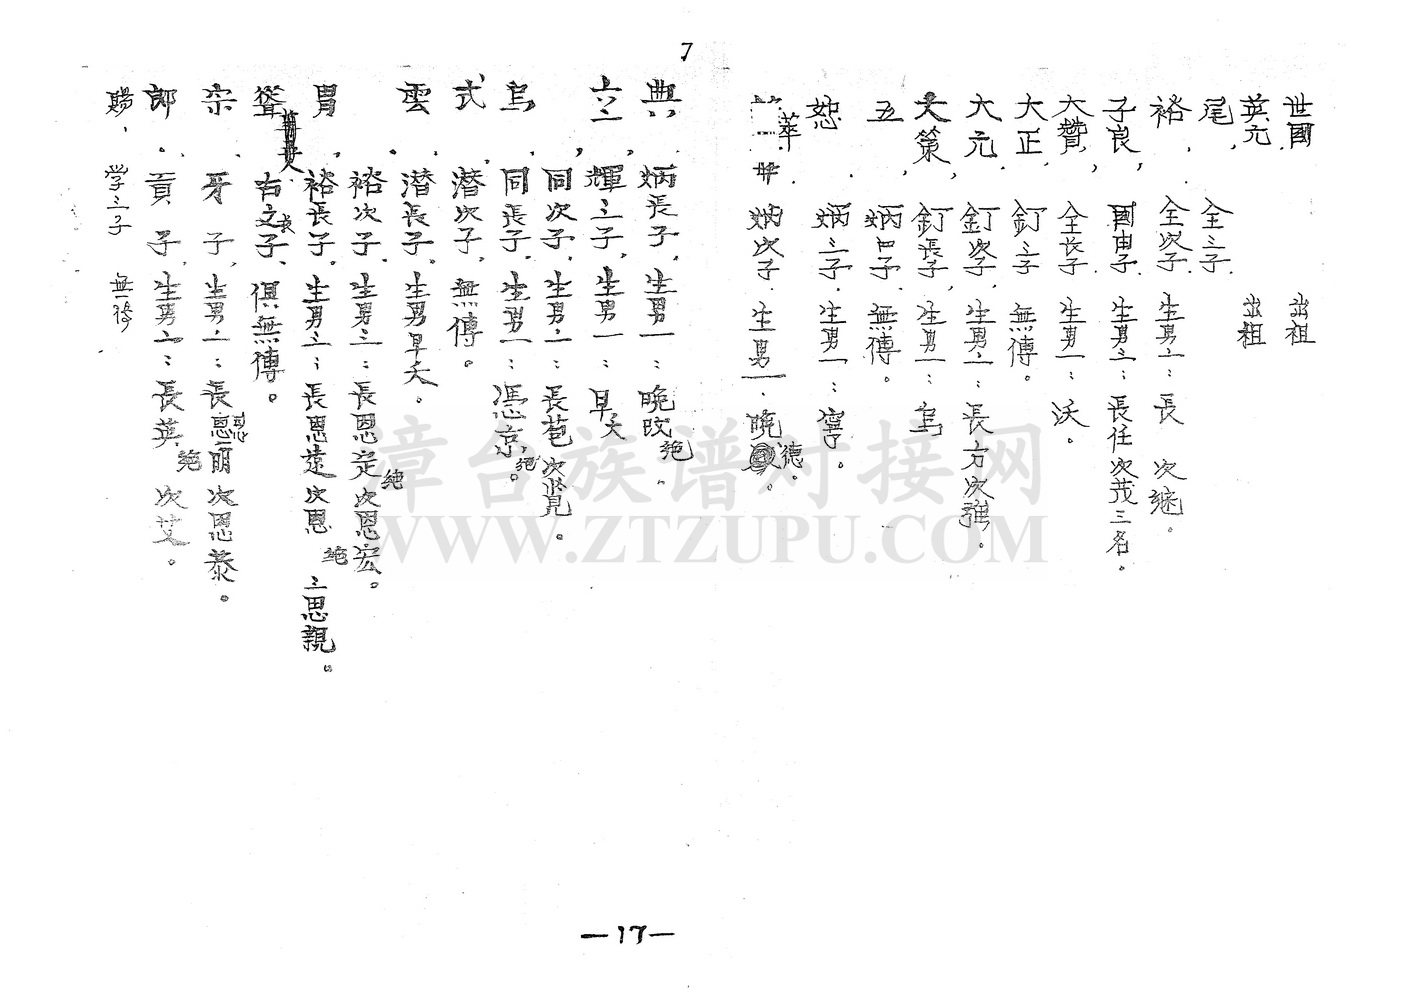 7
世國 出祖
英元 出祖
尾, 全三子.
裕, 全次子. 生男二: 長 次継.
子良, 國甫子. 生男三: 長任次茂三名.
大贊, 全長子 生男一: 沃.
大正, 釘三子 無傳.
大元, 釘次子, 生男二: 長方次强.
大策, 釘長子, 生男一: 烏
五 . 炳四子. 無傳.
恕 . 炳三子. 生男一: 寧.
萃 . 炳次子. 生男一. 晚德.
典, 炳長子, 生男一: 晚改 絶.
立, 輝三子, 生男一: 早夭
烏, 同次子, 生男二: 長苞次覚.
同長子, 生男一: 憑京. 絶
式, 潜次子, 無傳.
雲. 潜長子, 生男早夭.
裕次子, 生男二: 長恩定 絶 次恩宏.
胃, 裕長子, 生男三: 長恩遠次恩 絶 三思親.
聳 右之子, 俱無傳.
宗, 牙子, 生男二: 長恩明次恩泰.
郎. 貢子, 生男二: 長英 絶 次艾.
賜, 学三子 無傳
漳台族谱对接网
WWW.ZTZUPU.COM
—17—